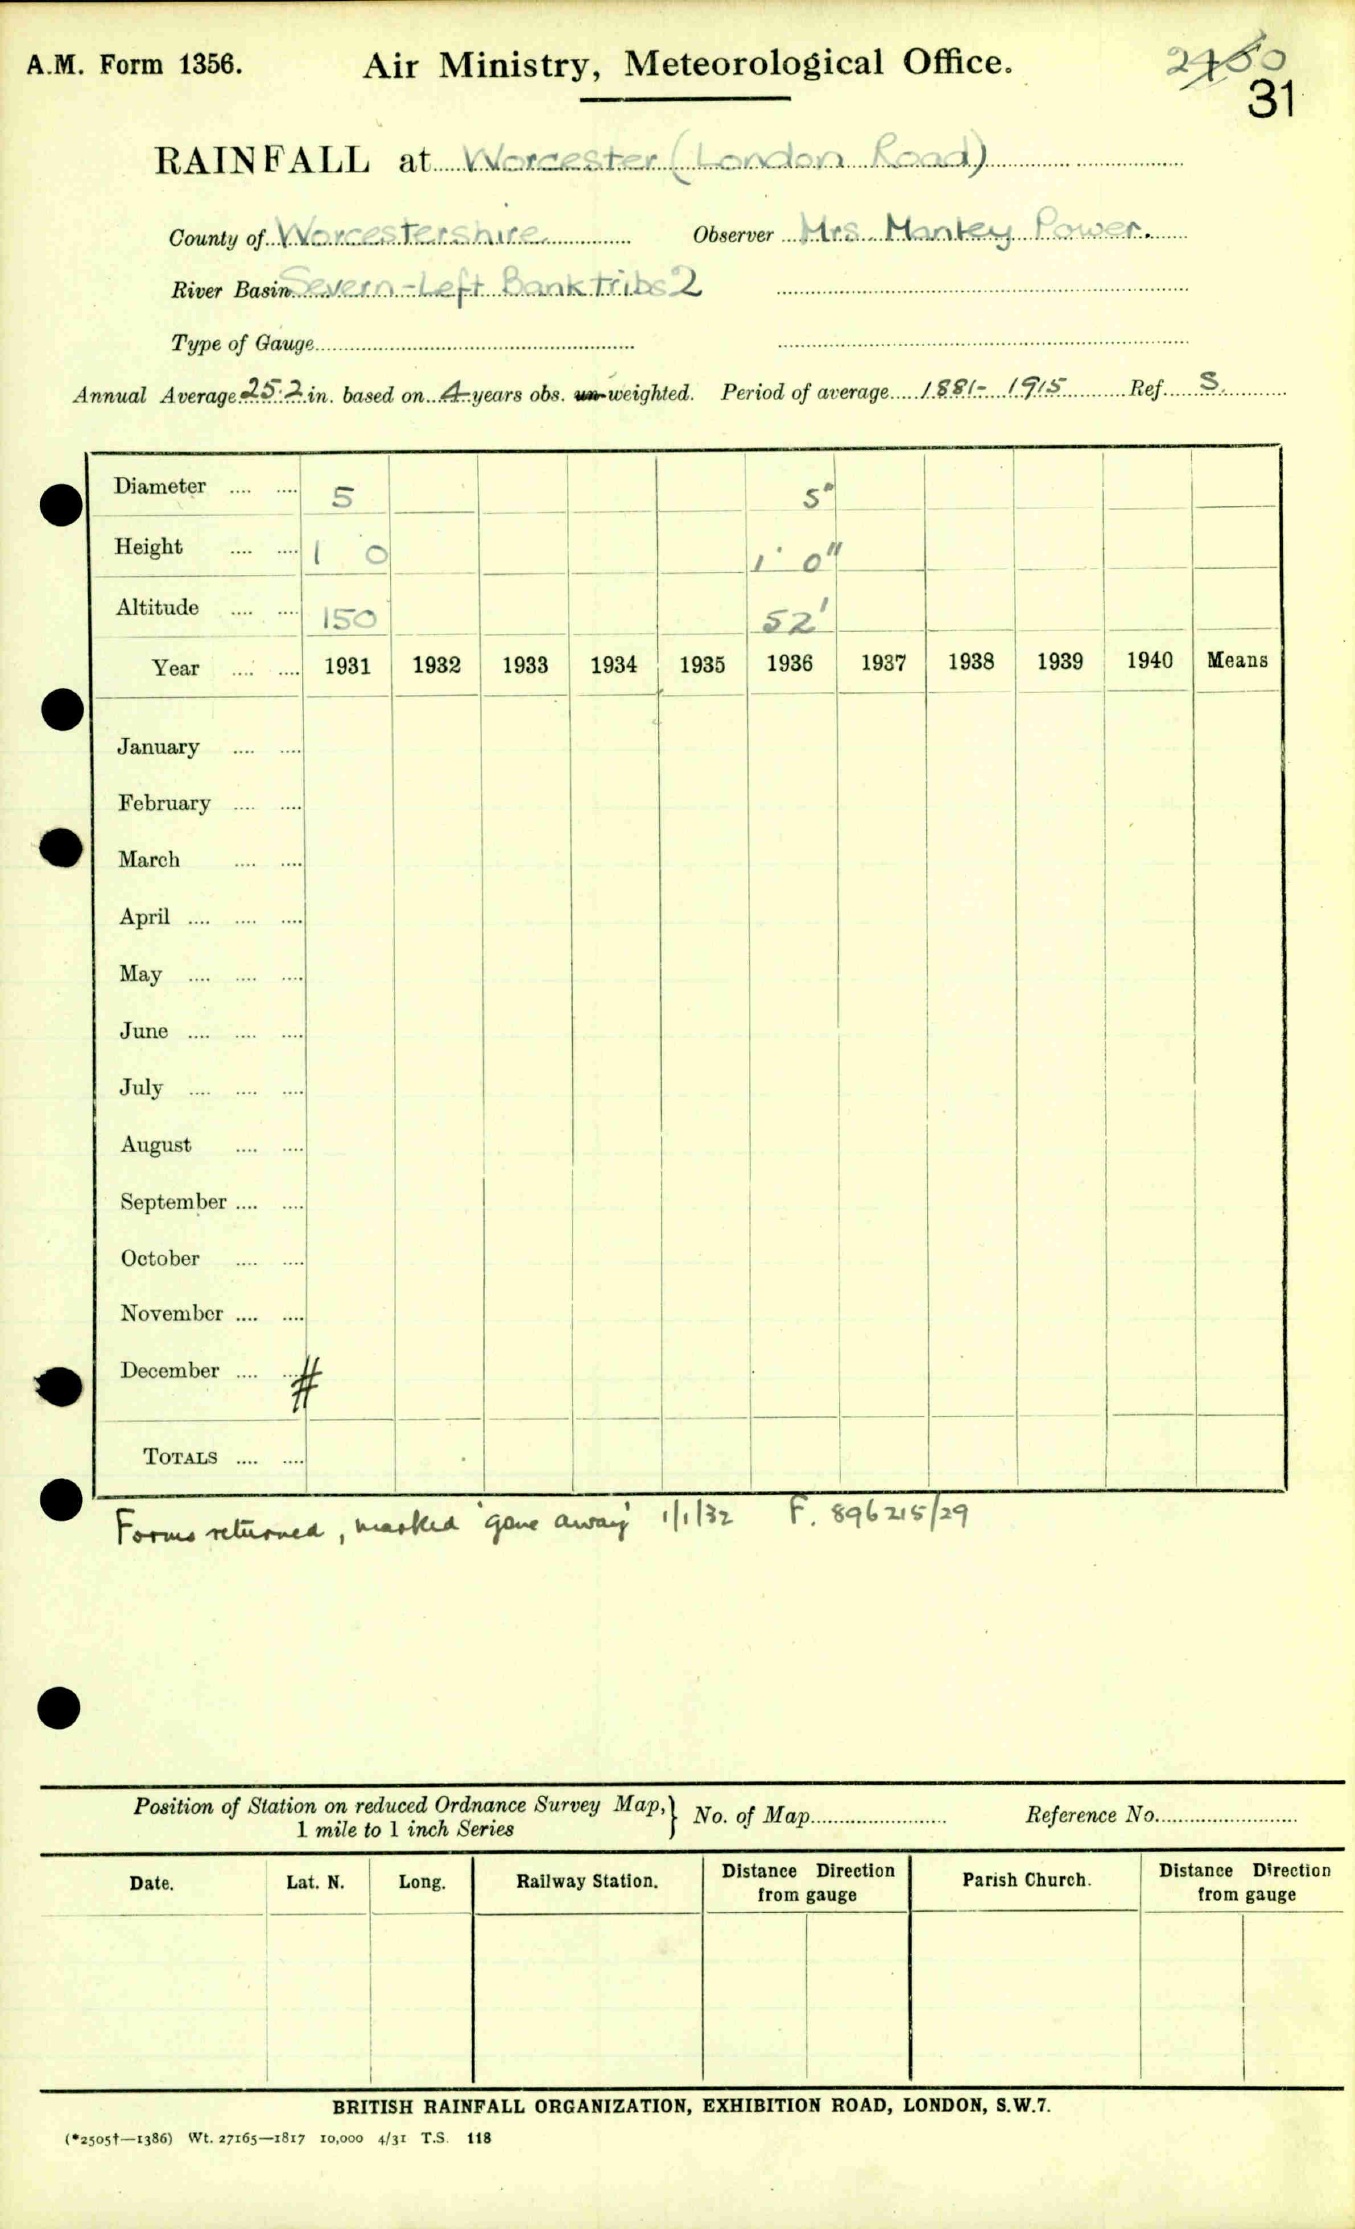 A.M. Form 1356. Air Ministry, Meteorological Office.
31
RAINFALL at Worcester (London Road)
County of Worcestershire Observer Mrs. Manley Power.
River Basin Severn-Left Bank tribs 2
Type of Gauge
Annual Average 25.2 in. based on 4 years obs. un-weighted. Period of average 1881- 1915 Ref. S.
Diameter .... .... 5 5"
Height .... .... 1 0 1' 0"
Altitude .... .... 150 52'
Year .... .... 1931 1932 1933 1934 1935 1936 1937 1938 1939 1940 Means
January .... ....
February .... ....
March .... ....
April .... .... ....
May .... .... ....
June .... .... ....
July .... .... ....
August .... ....
September .... ....
October .... ....
November .... ....
December .... .... #
TOTALS .... ....
Forms returned, marked 'gone away' 1/1/32 F. 896215/29
Position of Station on reduced Ordnance Survey Map, } No. of Map Reference No.
1 mile to 1 inch Series
Date. Lat. N. Long. Railway Station. Distance Direction Parish Church. Distance Direction
from gauge from gauge
BRITISH RAINFALL ORGANIZATION, EXHIBITION ROAD, LONDON, S.W.7.
(*2505†—1386) Wt. 27165—1817 10,000 4/31 T.S. 118